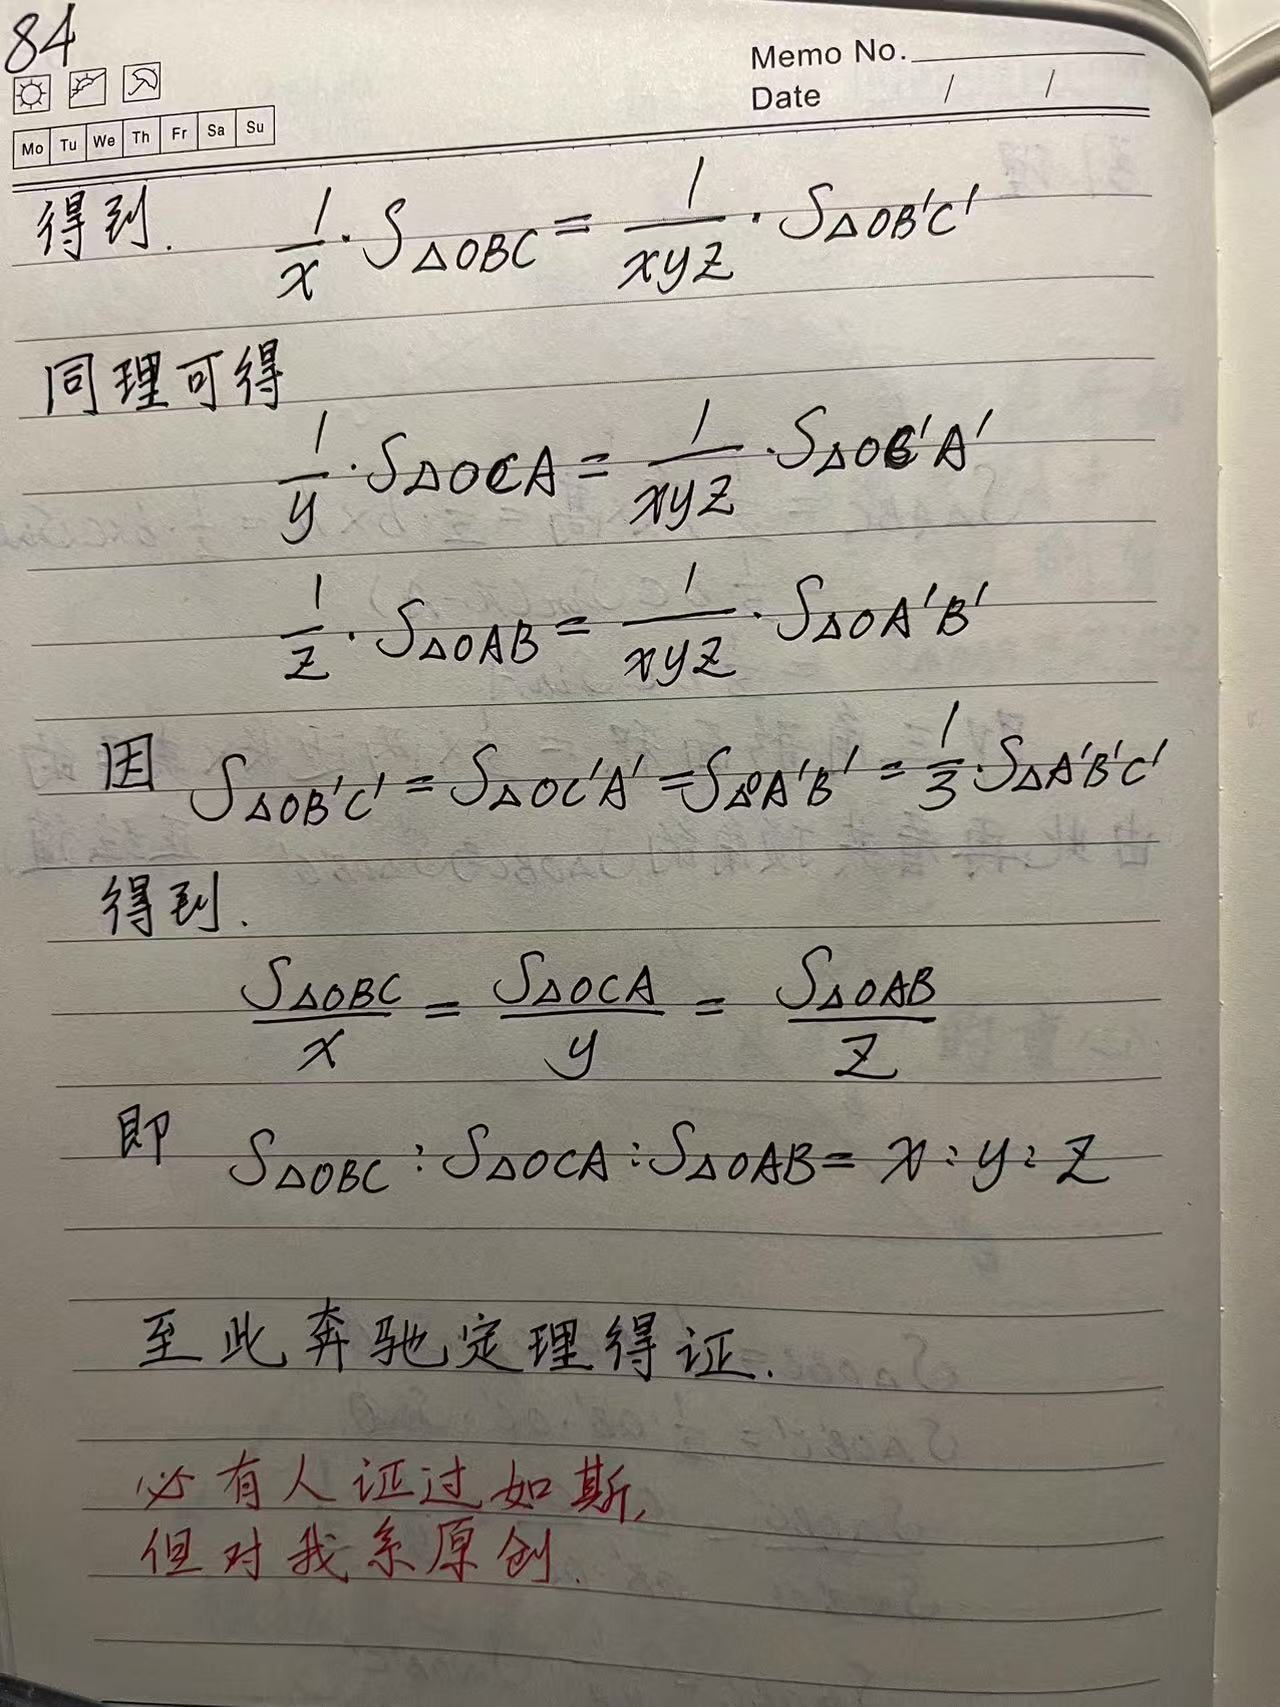 84
Memo No.
Date / /
Mo Tu We Th Fr Sa Su
得到. 1/x · S△OBC = 1/xyz · S△OB'C'
同理可得
1/y · S△OCA = 1/xyz · S△OC'A'
1/z · S△OAB = 1/xyz · S△OA'B'
因 S△OB'C' = S△OC'A' = S△OA'B' = 1/3 · S△A'B'C'
得到.
S△OBC/x = S△OCA/y = S△OAB/z
即 S△OBC : S△OCA : S△OAB = x : y : z
至此奔驰定理得证.
必有人证过如斯,
但对我系原创.